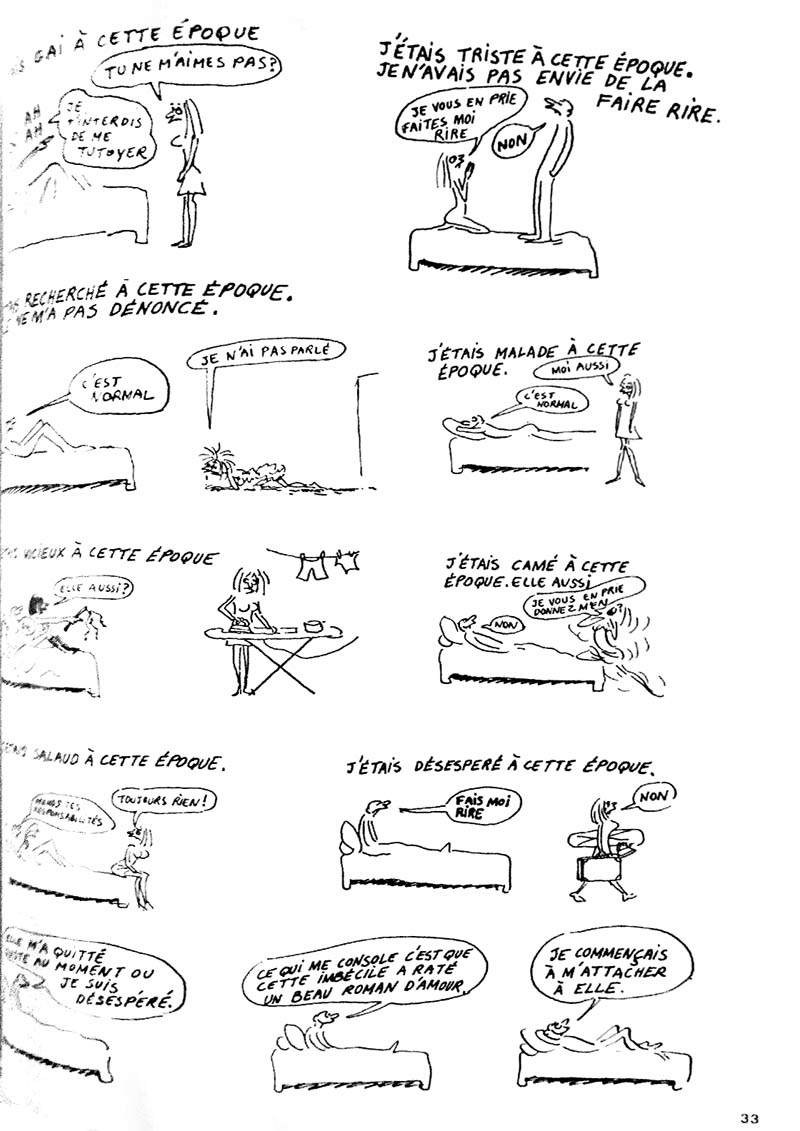 GAI À CETTE ÉPOQUE
TU NE M'AIMES PAS?
AH
AH
JE
T'INTERDIS
DE ME
TUTOYER
J'ÉTAIS TRISTE À CETTE ÉPOQUE.
JE N'AVAIS PAS ENVIE DE LA
FAIRE RIRE.
JE VOUS EN PRIE
FAITES MOI
RIRE
NON
RECHERCHÉ À CETTE ÉPOQUE.
NE M'A PAS DÉNONCÉ.
C'EST
NORMAL
JE N'AI PAS PARLÉ
J'ÉTAIS MALADE À CETTE
ÉPOQUE.
MOI AUSSI
C'EST
NORMAL
VICIEUX À CETTE ÉPOQUE
ELLE AUSSI?
J'ÉTAIS CAMÉ À CETTE
ÉPOQUE. ELLE AUSSI
JE VOUS EN PRIE
DONNEZ M'EN
NON
SALAUD À CETTE ÉPOQUE.
PRENDS TES
RESPONSABILITÉS
TOUJOURS RIEN!
J'ÉTAIS DÉSESPERÉ À CETTE ÉPOQUE.
FAIS MOI
RIRE
NON
ELLE M'A QUITTÉ
AU MOMENT OU
JE SUIS
DÉSESPÉRÉ.
CE QUI ME CONSOLE C'EST QUE
CETTE IMBÉCILE A RATÉ
UN BEAU ROMAN D'AMOUR.
JE COMMENÇAIS
À M'ATTACHER
À ELLE.
33